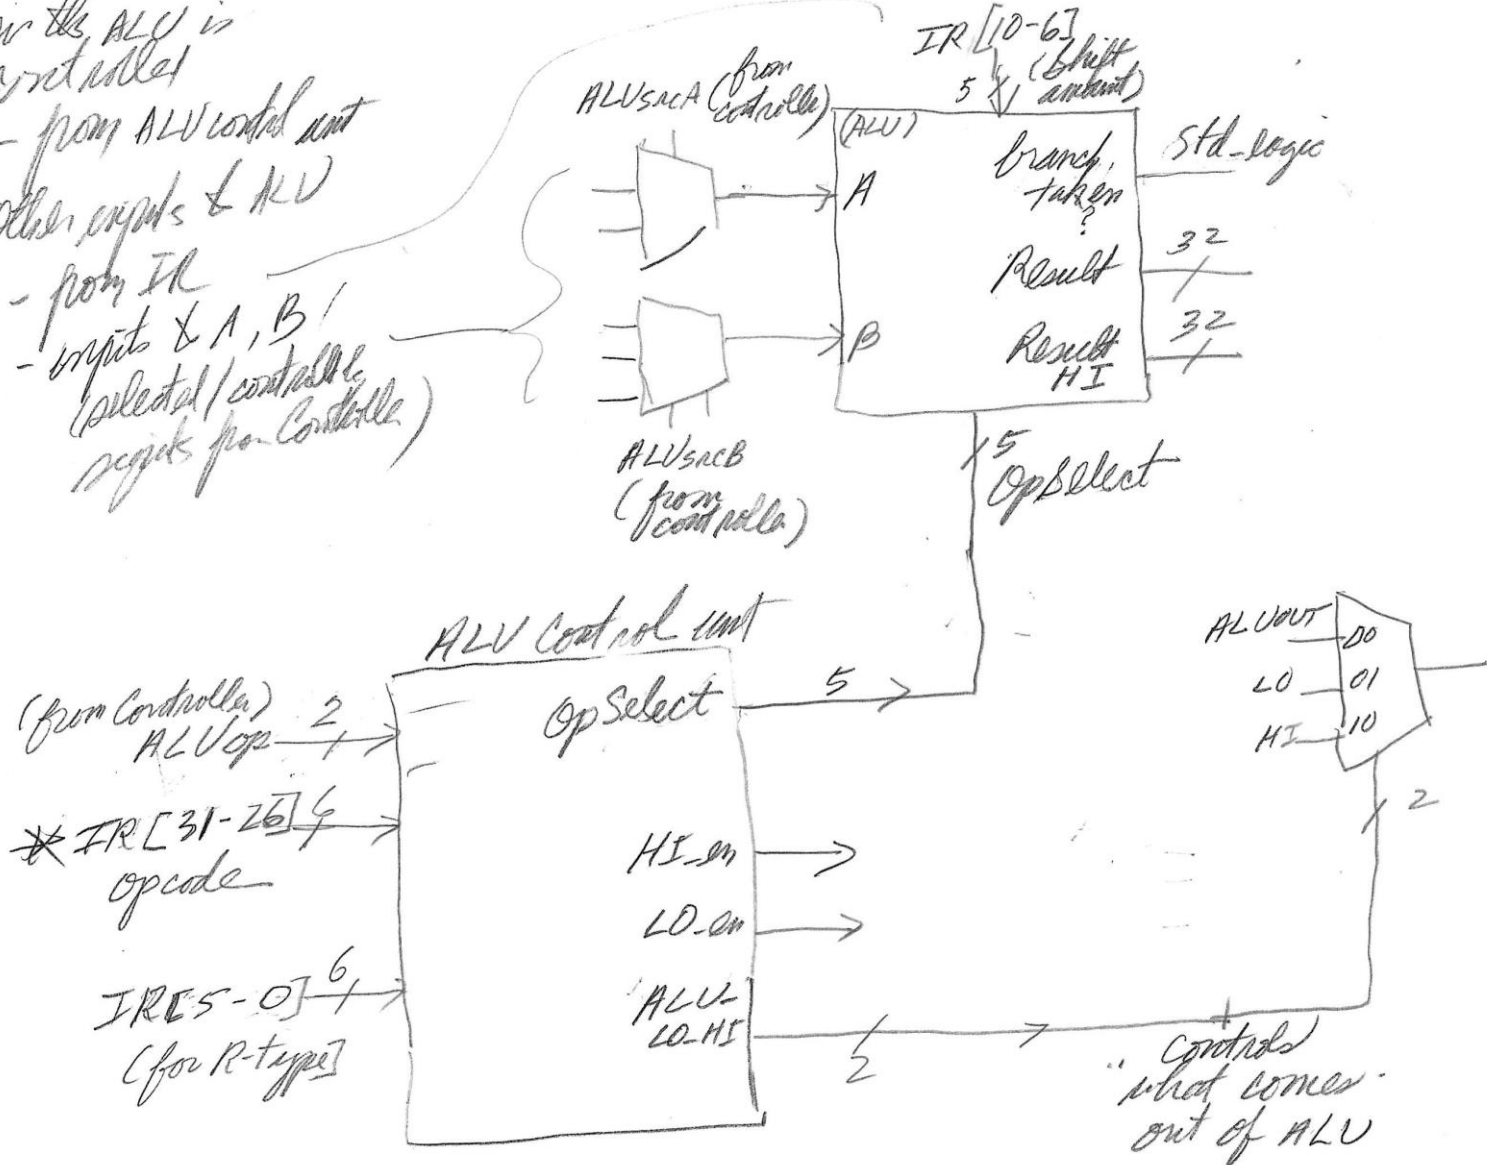 the ALU is
controlled
- from ALU control unit
other inputs to ALU
- from IR
- inputs to A, B
(selected / controlled
from Controller)
ALUsrcA (from
controller)
IR [10-6]
(shift
amount)
5
(ALU)
A
B
branch
taken
?
Result
Result
HI
std_logic
32
32
ALUsrcB
(from
controller)
5
OpSelect
ALU Control unit
(from Controller)
ALUop
2
IR [31-26] 6
opcode
IR[5-0] 6
(for R-type]
OpSelect
HI_en
LO_en
ALU_
LO_HI
5
2
ALUOUT
LO
HI
00
01
10
2
Controls
what comes
out of ALU